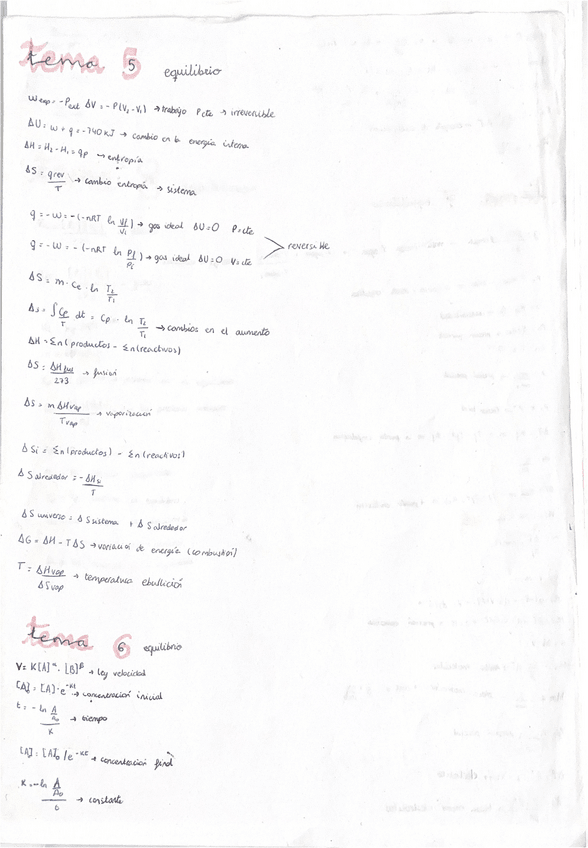 tema 5 equilibrio
Wexp = -Pext ΔV = -P(V2-V1) → trabajo Pcte → irreversible
ΔU = w + q = -740 KJ → cambio en la energía interna
ΔH = H2 - H1 = qp → entropía
ΔS = qrev/T → cambio entropía → sistema
q = -w = -(-nRT ln Vf/Vi) → gas ideal ΔU=0 P=cte
q = -w = -(-nRT ln Pf/Pi) → gas ideal ΔU=0 V=cte
reversible
ΔS = m · Ce · ln T2/T1
Δs = ∫ Cp/T dt = Cp · ln T2/T1 → cambios en el aumento
ΔH = Σn(productos - Σn(reactivos)
ΔS = ΔHfus/273 → fusión
ΔS = mΔHvap/Tvap → vaporización
ΔSi = Σn(productos) - Σn(reactivos)
ΔSalrededor = -ΔH/T
ΔSuniverso = ΔSsistema + ΔSalrededor
ΔG = ΔH - TΔS → variación de energía (combustión)
T = ΔHvap/ΔSvap → temperatura ebullición
tema 6 equilibrio
V = K[A]α · [B]β → ley velocidad
[A]0 = [A] · e-Kt → concentración inicial
t = -ln A/A0 / K → tiempo
[A] = [A]0 / e-Kt → concentración final
K = -ln A/A0 / t → constante